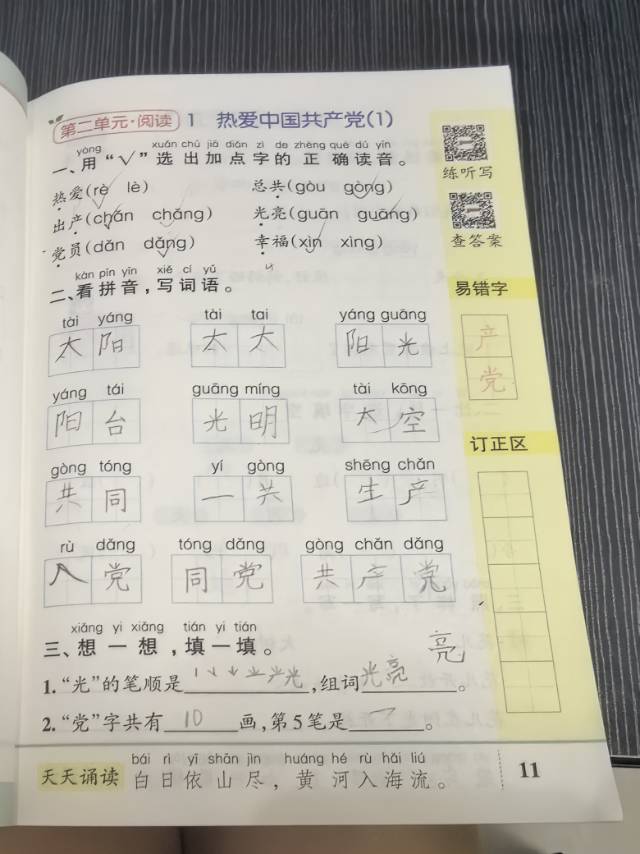 第二单元·阅读 1 热爱中国共产党(1)
yòng xuǎn chū jiā diǎn zì de zhèng què dú yīn
一、用“√”选出加点字的正确读音。
热爱(rè lè) 总共(gòu gòng)
出产(chǎn chǎng) 光亮(guān guāng)
党员(dǎn dǎng) 幸福(xìn xìng)
练听写
查答案
kàn pīn yīn xiě cí yǔ
二、看拼音,写词语。
易错字
产
党
tài yáng tài tai yáng guāng
太阳 太太 阳光
yáng tái guāng míng tài kōng
阳台 光明 太空
订正区
gòng tóng yí gòng shēng chǎn
共同 一共 生产
rù dǎng tóng dǎng gòng chǎn dǎng
入党 同党 共产党
xiǎng yi xiǎng tián yi tián
三、想一想,填一填。
亮
1.“光”的笔顺是,组词光亮。
2.“党”字共有10画,第5笔是。
bái rì yī shān jìn huáng hé rù hǎi liú
天天诵读 白日依山尽,黄河入海流。
11